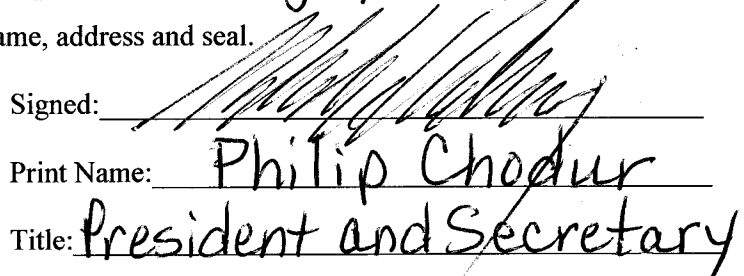 ame, address and seal.
Signed:
Print Name: Philip Chodur
Title: President and Secretary